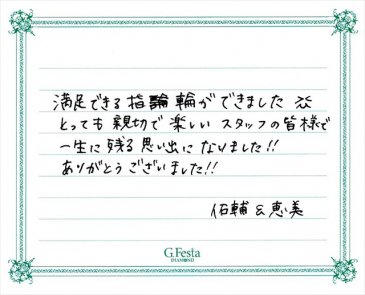 満足できる指輪ができました ^^
とっても親切で楽しいスタッフの皆様で
一生に残る思い出になりました!!
ありがとうございました!!
佑輔 & 恵美
G.Festa
DIAMOND